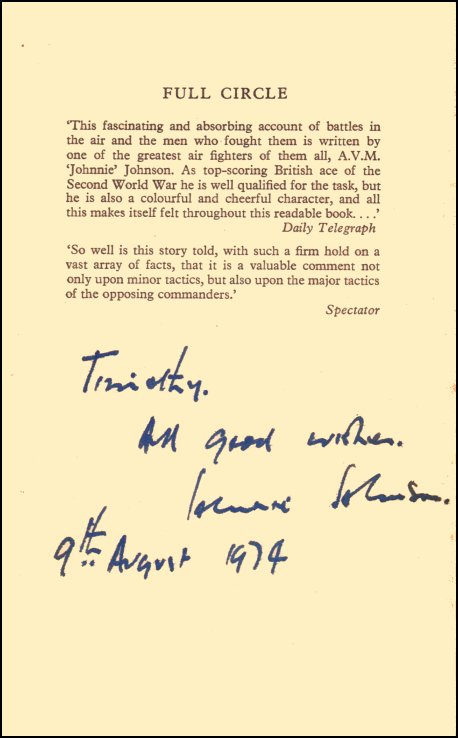 FULL CIRCLE
‘This fascinating and absorbing account of battles in
the air and the men who fought them is written by
one of the greatest air fighters of them all, A.V.M.
‘Johnnie’ Johnson. As top-scoring British ace of the
Second World War he is well qualified for the task, but
he is also a colourful and cheerful character, and all
this makes itself felt throughout this readable book. . . .’
Daily Telegraph
‘So well is this story told, with such a firm hold on a
vast array of facts, that it is a valuable comment not
only upon minor tactics, but also upon the major tactics
of the opposing commanders.’
Spectator
Timothy.
All good wishes.
Johnnie Johnson.
9th August 1974